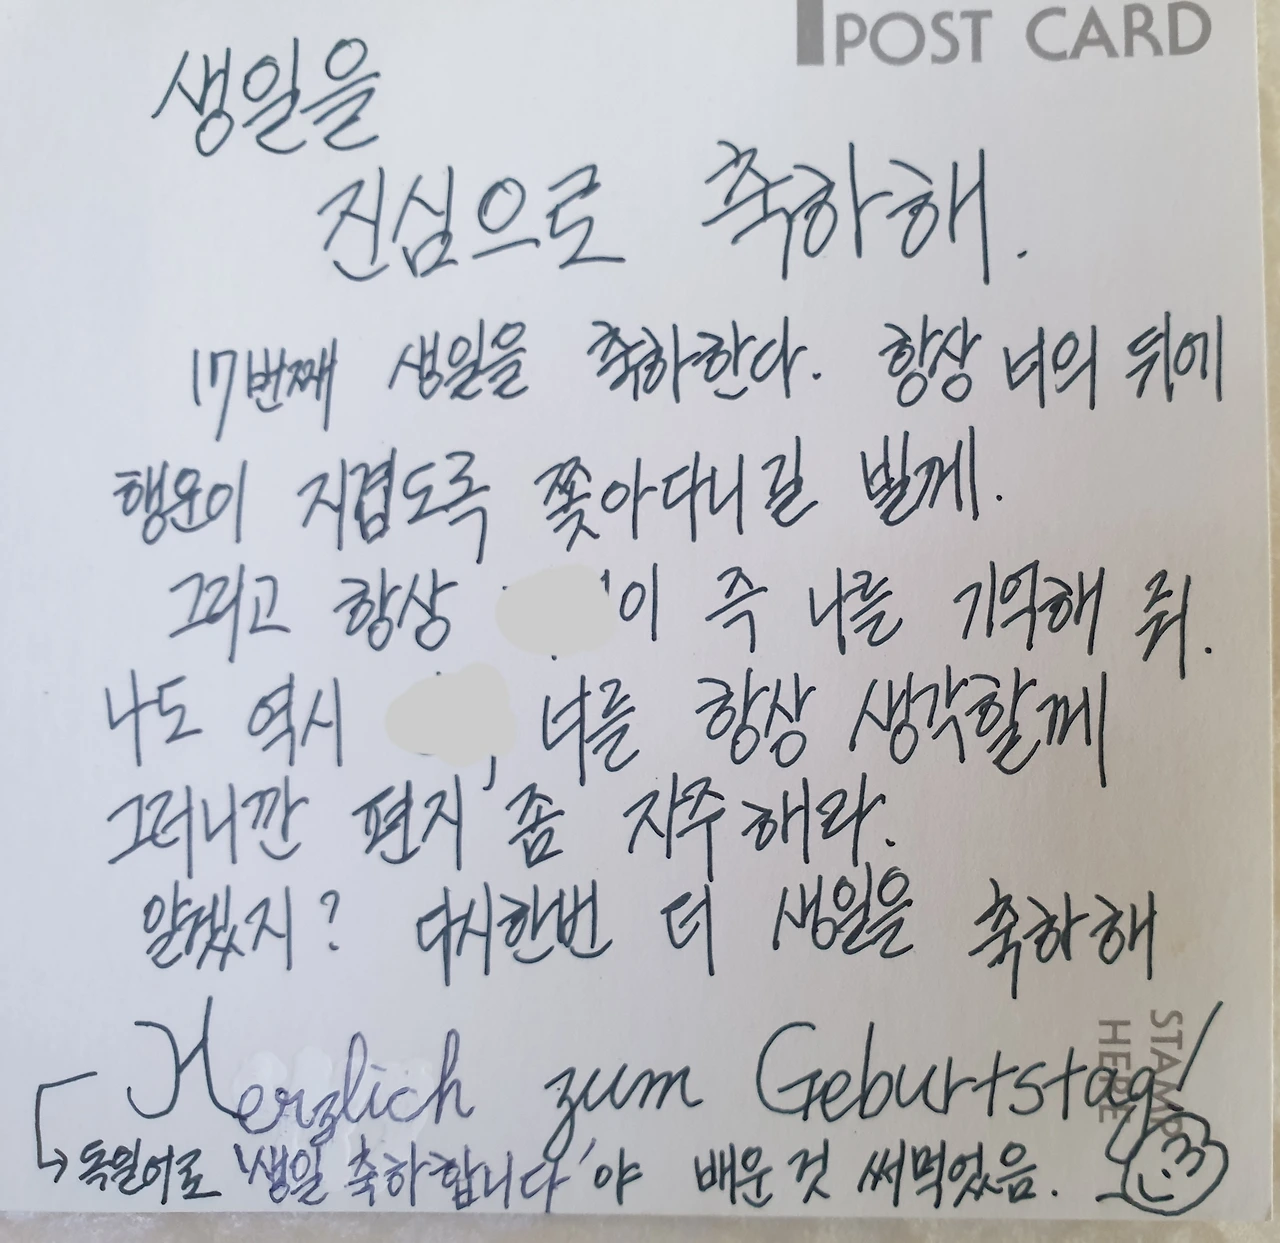 POST CARD
생일을
진심으로 축하해.
17번째 생일을 축하한다. 항상 너의 뒤에
행운이 지겹도록 쫓아다니길 빌께.
그리고 항상 이 즉 나를 기억해 줘.
나도 역시 , 너를 항상 생각할께
그러니깐 편지 좀 자주 해라.
알겠지? 다시한번 더 생일을 축하해
Herzlich zum Geburtstag!
STAMP
HERE
→ 독일어로 '생일 축하합니다'야 배운 것 써먹었음.